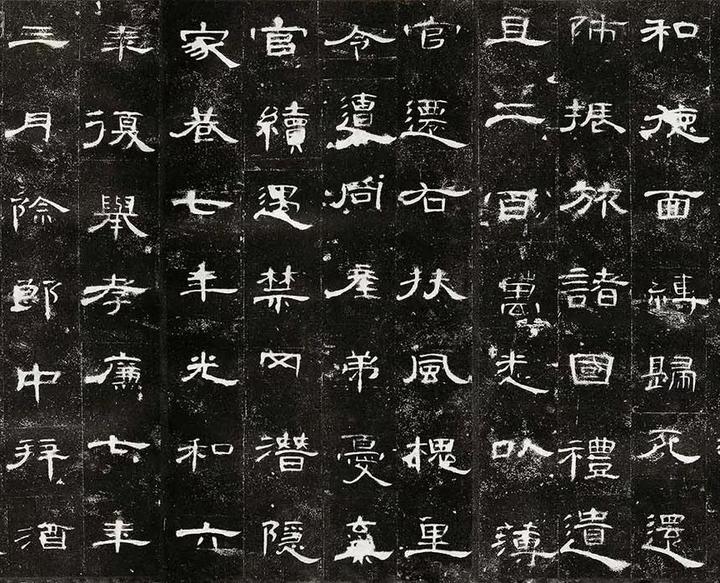 和德面縛歸死還
師振旅諸國禮遺
且二百萬悉以薄
官遷右扶風槐里
令遭同產弟憂棄
官續遇禁网潛隱
家巷七年光和六
年復舉孝廉七年
三月除郎中拜酒